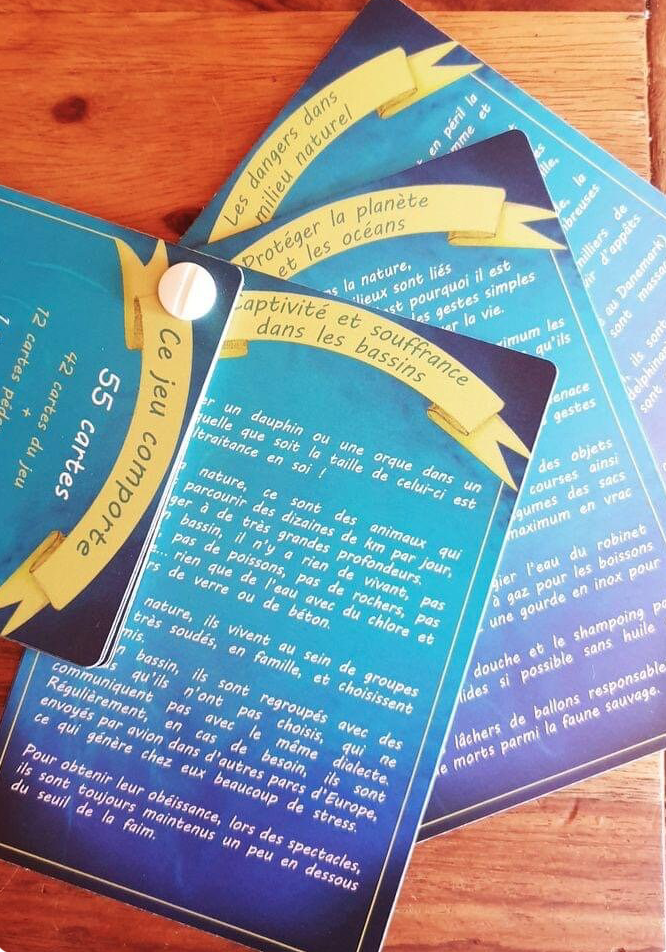 Les dangers dans
milieu naturel
en péril la
et
la
milliers de
d'appâts
au Danemark
sont
ils sont
sont
Protéger la planète
et les océans
la nature,
sont liés
pourquoi il est
les gestes simples
la vie.
les
qu'ils
gestes
des objets
courses ainsi
des sacs
maximum en vrac
l'eau du robinet
à gaz pour les boissons
une gourde en inox pour
douche et le shampoing
si possible sans huile
lâchers de ballons responsable
morts parmi la faune sauvage.
Captivité et souffrance
dans les bassins
un dauphin ou une orque dans un
quelle que soit la taille de celui-ci est
en soi !
nature, ce sont des animaux qui
parcourir des dizaines de km par jour,
à de très grandes profondeurs.
bassin, il n'y a rien de vivant, pas
pas de poissons, pas de rochers, pas
... rien que de l'eau avec du chlore et
de verre ou de béton.
nature, ils vivent au sein de groupes
très soudés, en famille, et choisissent
bassin, ils sont regroupés avec des
qu'ils n'ont pas choisis, qui ne
communiquent pas avec le même dialecte.
Régulièrement, en cas de besoin, ils sont
envoyés par avion dans d'autres parcs d'Europe,
ce qui génère chez eux beaucoup de stress.
Pour obtenir leur obéissance, lors des spectacles,
ils sont toujours maintenus un peu en dessous
du seuil de la faim.
Ce jeu comporte
55 cartes
42 cartes du jeu
+
12 cartes